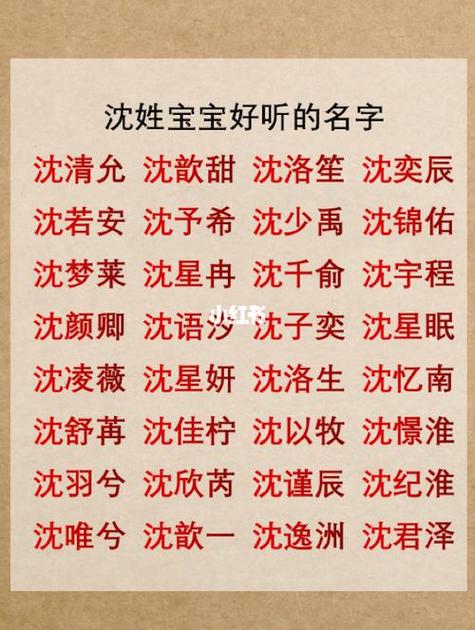 沈姓宝宝好听的名字
沈清允 沈歆甜 沈洛笙 沈奕辰
沈若安 沈予希 沈少禹 沈锦佑
沈梦莱 沈星冉 沈千俞 沈宇程
沈颜卿 沈语汐 沈子奕 沈星眠
小红书
沈凌薇 沈星妍 沈洛生 沈忆南
沈舒苒 沈佳柠 沈以牧 沈憬淮
沈羽兮 沈欣芮 沈谨辰 沈纪淮
沈唯兮 沈歆一 沈逸洲 沈君泽